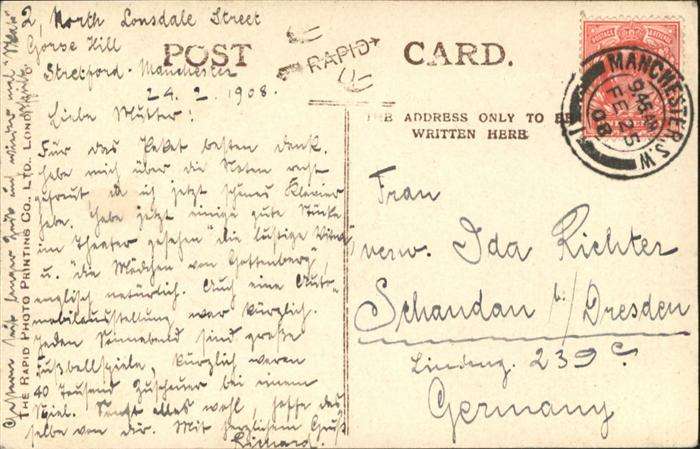 2, North Lonsdale Street
Gorse Hill
Stretford - Manchester
24. 2. 1908.
Liebe Mutter!
Für das Paket besten Dank.
Habe mich über die Noten recht
gefreut da ich jetzt schönes Klavier
habe. Habe jetzt einige gute Stücke
im Theater gesehen "die lustige Witwe"
u. "die Mädchen von Gottenberg",
englisch natürlich. Auch eine Auto-
mobilausstellung war kürzlich.
Jeden Sonnabend sind große
Fußballspiele, kürzlich waren
40 Tausend Zuschauer bei einem
Spiel. Sonst alles wohl, hoffe das-
selbe von dir. Mit herzlichem Gruß
Richard.
Gestern
THE RAPID PHOTO PRINTING CO., LTD. LONDON
POST CARD.
RAPID
THE ADDRESS ONLY TO BE
WRITTEN HERE
MANCHESTER. S.W
FE 25
08
Frau
verw. Ida Richter
Schandau b/ Dresden
Lindeng. 239 c
Germany